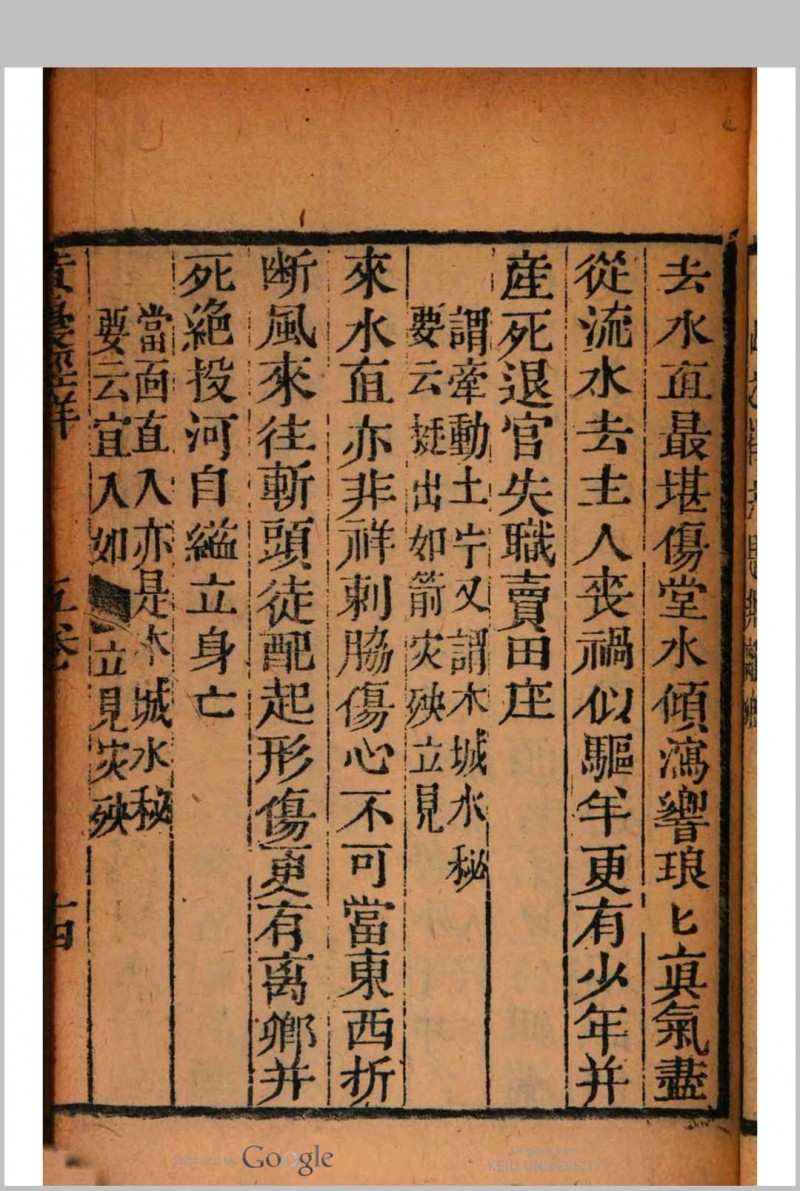 去水直最堪傷堂水傾瀉響琅匕真氣盡
從流水去主人喪禍似驅羊更有少年并
産死退官失職賣田庄
謂牽動土牛又謂木城水秘
要云挺出如箭灾殃立見
來水直亦非祥刺脇傷心不可當東西折
断風來往斬頭徒配起形傷更有离鄉并
死絶投河自縊立身亡
當面直入亦是木城水秘
要云直入如立見灾殃
五卷
十四
Google
KEIO UNIVERSITY